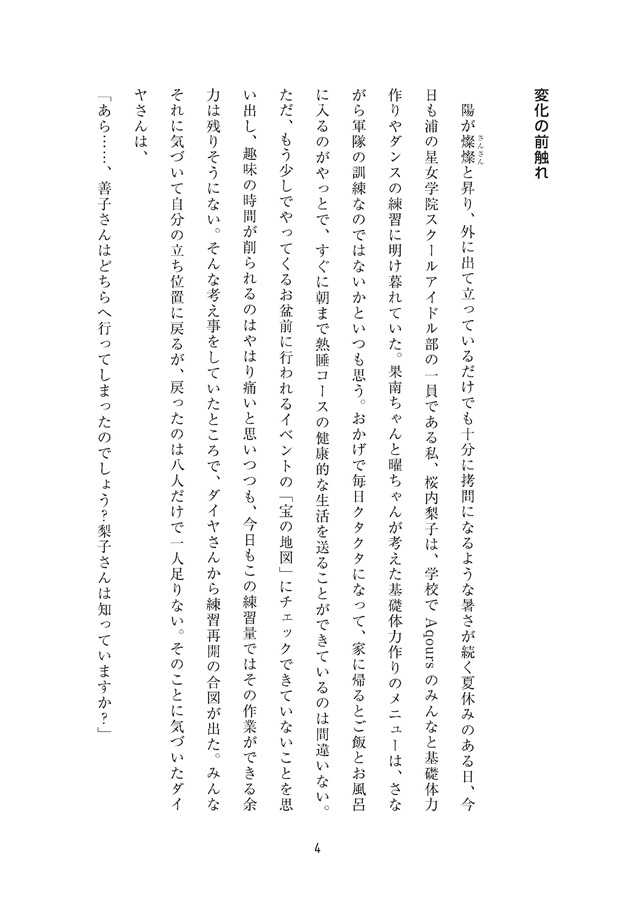 変化の前触れ
陽が燦燦と昇り、外に出て立っているだけでも十分に拷問になるような暑さが続く夏休みのある日、今
さんさん
日も浦の星女学院スクールアイドル部の一員である私、桜内梨子は、学校で Aqours のみんなと基礎体力
作りやダンスの練習に明け暮れていた。果南ちゃんと曜ちゃんが考えた基礎体力作りのメニューは、さな
がら軍隊の訓練なのではないかといつも思う。おかげで毎日クタクタになって、家に帰るとご飯とお風呂
に入るのがやっとで、すぐに朝まで熟睡コースの健康的な生活を送ることができているのは間違いない。
ただ、もう少しでやってくるお盆前に行われるイベントの「宝の地図」にチェックできていないことを思
い出し、趣味の時間が削られるのはやはり痛いと思いつつも、今日もこの練習量ではその作業ができる余
力は残りそうにない。そんな考え事をしていたところで、ダイヤさんから練習再開の合図が出た。みんな
それに気づいて自分の立ち位置に戻るが、戻ったのは八人だけで一人足りない。そのことに気づいたダイ
ヤさんは、
「あら……、善子さんはどちらへ行ってしまったのでしょう？梨子さんは知っていますか？」
4